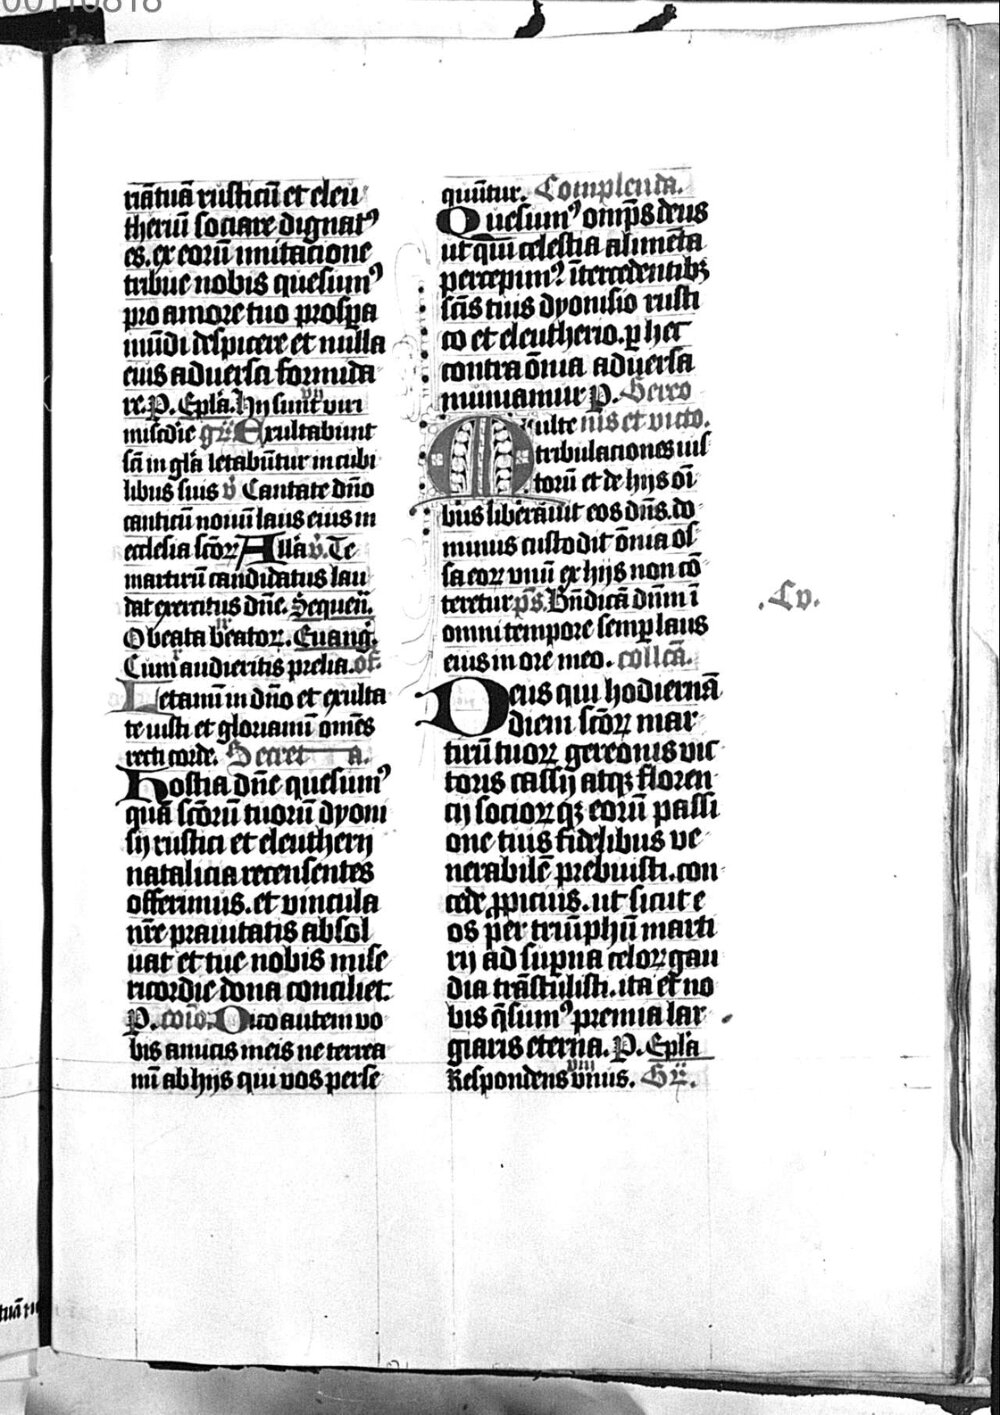 riātuā rusticū et eleu
theriū sociare dignatꝰ
es. ex eorū imitacione
tribue nobis quesumꝰ
pro amore tuo prospa
mūdi despicere et nulla
eius aduersa formida
re. P. Epl̄a. Hij sunt viri
misc̄die gr̄. Exultabunt
sc̄i in gl̄a letabūtur in cubi
libus suis v̄ Cantate dn̄o
canticū nouū laus eius in
ecclesia scōꝝ All̄a v̄. Te
martirū candidatus lau
dat exercitus dn̄e. Sequeñ.
O beata beatoꝝ. Euanḡ.
Cum audieritis prelia. of̄.
Letamī in dn̄o et exulta
te iusti et gloriamī om̄es
recti corde. Secreta.
Hostia dn̄e quesumꝰ
quā scōrū tuorū dyoni
sij rustici et eleutherij
natalicia recensentes
offerimus. et vincula
nr̄e prauitatis absol
uat et tue nobis mise
ricordie dona conciliet.
P. cōīo. Dico autem vo
bis amicis meis ne terrea
mī ab hijs qui vos perse
quūtur. Complenda.
Quesumꝰ omp̄s deus
ut qui celestia alimēta
percepimꝰ ītercedentibꝫ
sc̄is tuis dyonisio rusti
co et eleutherio. ꝑ hec
contra ōnia aduersa
muniamur P. Gereo
Multe nis et victo.
tribulaciones ius
torū et de hijs oī
bus liberauit eos dn̄s. do
minus custodit ōnia os
sa eoꝝ vnū ex hijs non cō
teretur p̄s. Bn̄dicā dn̄m ī
omni tempore semꝑ laus
eius in ore meo. collc̄a.
Deus qui hodiernā
diem scōꝝ mar
tirū tuoꝝ gereonis vic
toris cassij atqꝫ floren
cij socioꝝ qꝫ eorū passi
one tuis fidelibus ve
nerabilē prebuisti. con
cede ꝓpicius. ut sicut e
os per triūphū marti
rij ad suꝑna celoꝝ gau
dia trāstulisti. ita et no
bis q̄sumꝰ premia lar
giaris eterna. P. Epl̄a
Respondens vnus. Gr̄.
.Lv.